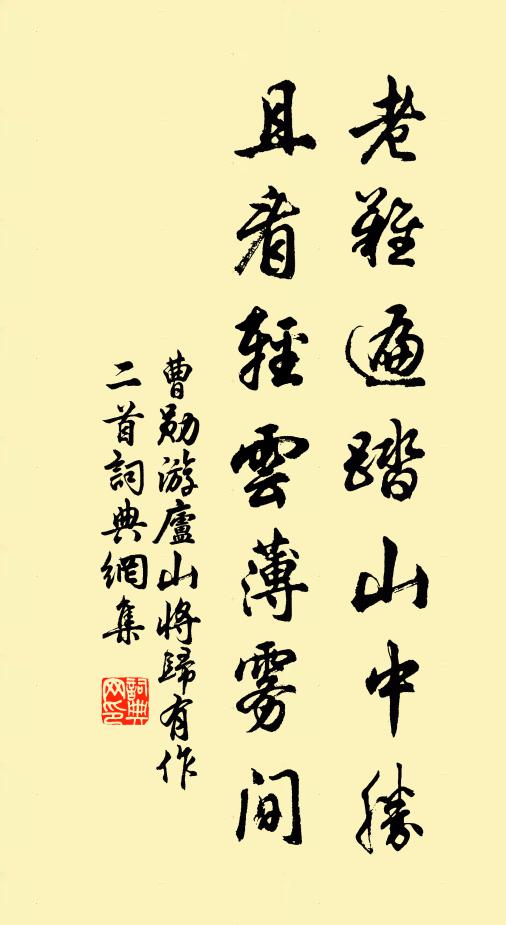 老難遍踏山中勝
且看輕雲薄雾間
曹勛游廬山將歸有作
二首詞典網集
詞典
网印